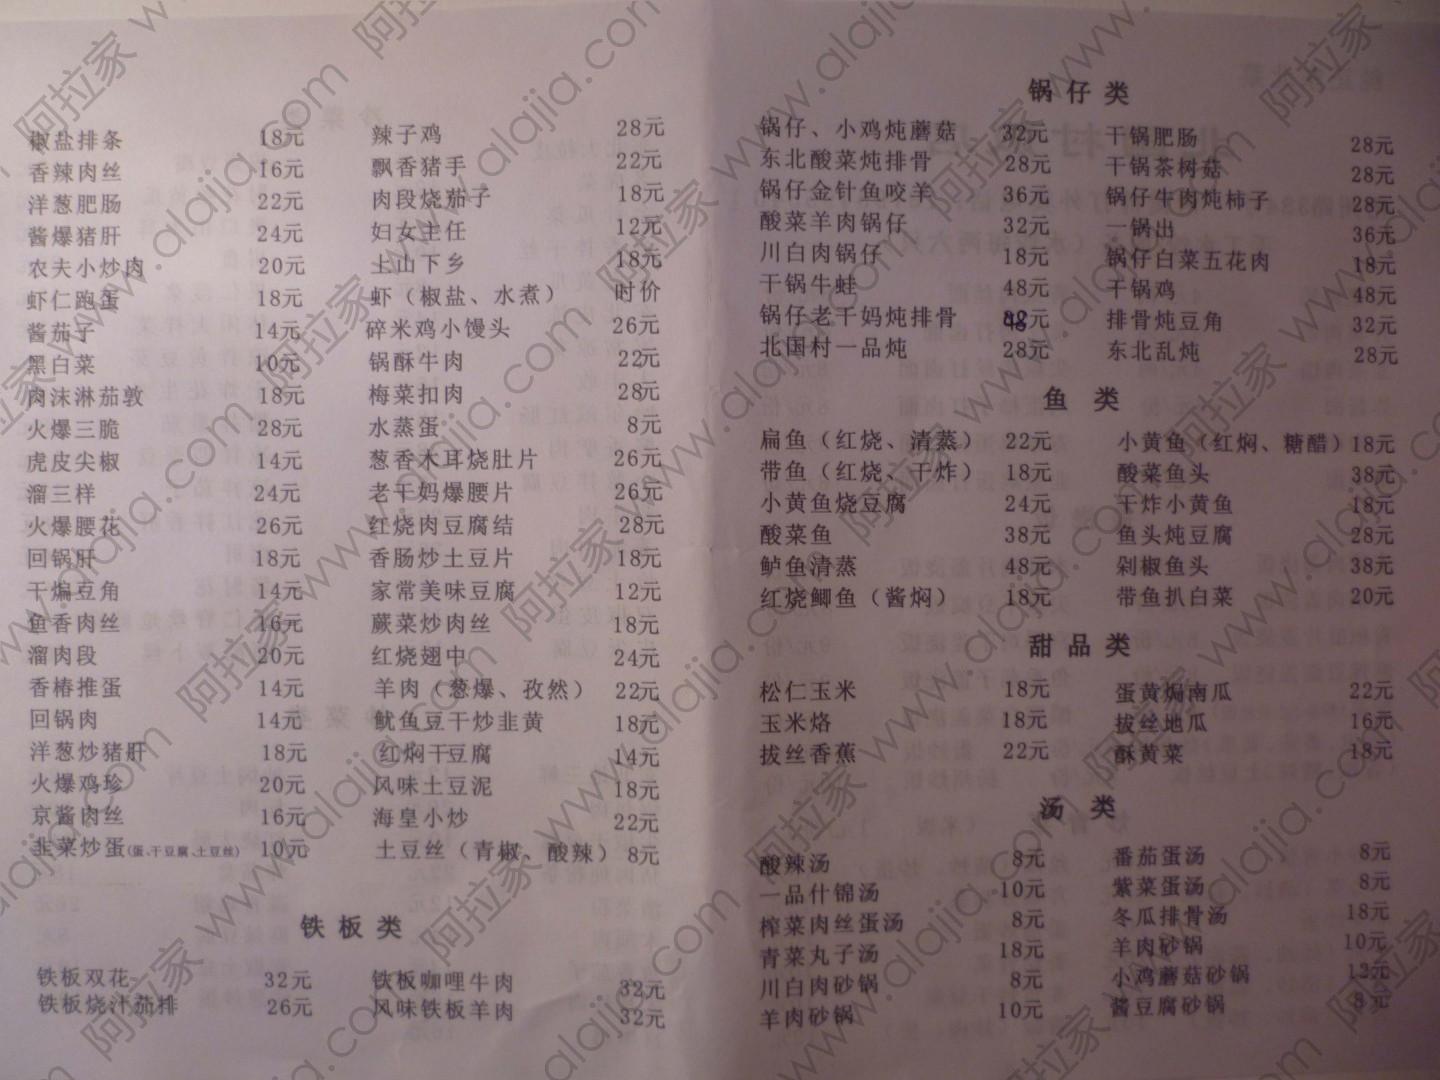 椒盐排条 18元
香辣肉丝 16元
洋葱肥肠 22元
酱爆猪肝 24元
农夫小炒肉 20元
虾仁跑蛋 18元
酱茄子 14元
黑白菜 10元
肉沫淋茄敦 18元
火爆三脆 28元
虎皮尖椒 14元
溜三样 24元
火爆腰花 26元
回锅肝 18元
干煸豆角 14元
鱼香肉丝 16元
溜肉段 20元
香椿推蛋 14元
回锅肉 14元
洋葱炒猪肝 18元
火爆鸡珍 20元
京酱肉丝 16元
韭菜炒蛋(蛋、干豆腐、土豆丝) 10元
辣子鸡 28元
飘香猪手 22元
肉段烧茄子 18元
妇女主任 12元
上山下乡 18元
虾（椒盐、水煮） 时价
碎米鸡小馒头 26元
锅酥牛肉 22元
梅菜扣肉 28元
水蒸蛋 8元
葱香木耳烧肚片 26元
老干妈爆腰片 26元
红烧肉豆腐结 28元
香肠炒土豆片 18元
家常美味豆腐 12元
蕨菜炒肉丝 18元
红烧翅中 24元
羊肉（葱爆、孜然） 22元
鱿鱼豆干炒韭黄 18元
红焖干豆腐 14元
风味土豆泥 18元
海皇小炒 22元
土豆丝（青椒、酸辣） 8元
铁板类
铁板双花 32元 铁板咖哩牛肉 32元
铁板烧汁茄排 26元 风味铁板羊肉 32元
锅仔类
锅仔、小鸡炖蘑菇 32元 干锅肥肠 28元
东北酸菜炖排骨 28元 干锅茶树菇 28元
锅仔金针鱼咬羊 36元 锅仔牛肉炖柿子 28元
酸菜羊肉锅仔 32元 一锅出 36元
川白肉锅仔 18元 锅仔白菜五花肉 18元
干锅牛蛙 48元 干锅鸡 48元
锅仔老干妈炖排骨 元 排骨炖豆角 32元
北国村一品炖 28元 东北乱炖 28元
鱼类
扁鱼（红烧、清蒸） 22元 小黄鱼（红焖、糖醋） 18元
带鱼（红烧、干炸） 18元 酸菜鱼头 38元
小黄鱼烧豆腐 24元 干炸小黄鱼 18元
酸菜鱼 38元 鱼头炖豆腐 28元
鲈鱼清蒸 48元 剁椒鱼头 38元
红烧鲫鱼（酱焖） 18元 带鱼扒白菜 20元
甜品类
松仁玉米 18元 蛋黄焗南瓜 22元
玉米烙 18元 拔丝地瓜 16元
拔丝香蕉 22元 酥黄菜 18元
汤类
酸辣汤 8元 番茄蛋汤 8元
一品什锦汤 10元 紫菜蛋汤 8元
榨菜肉丝蛋汤 8元 冬瓜排骨汤 18元
青菜丸子汤 18元 羊肉砂锅 10元
川白肉砂锅 8元 小鸡蘑菇砂锅 12元
羊肉砂锅 10元 酱豆腐砂锅 8元
阿拉家 www.alajia.com